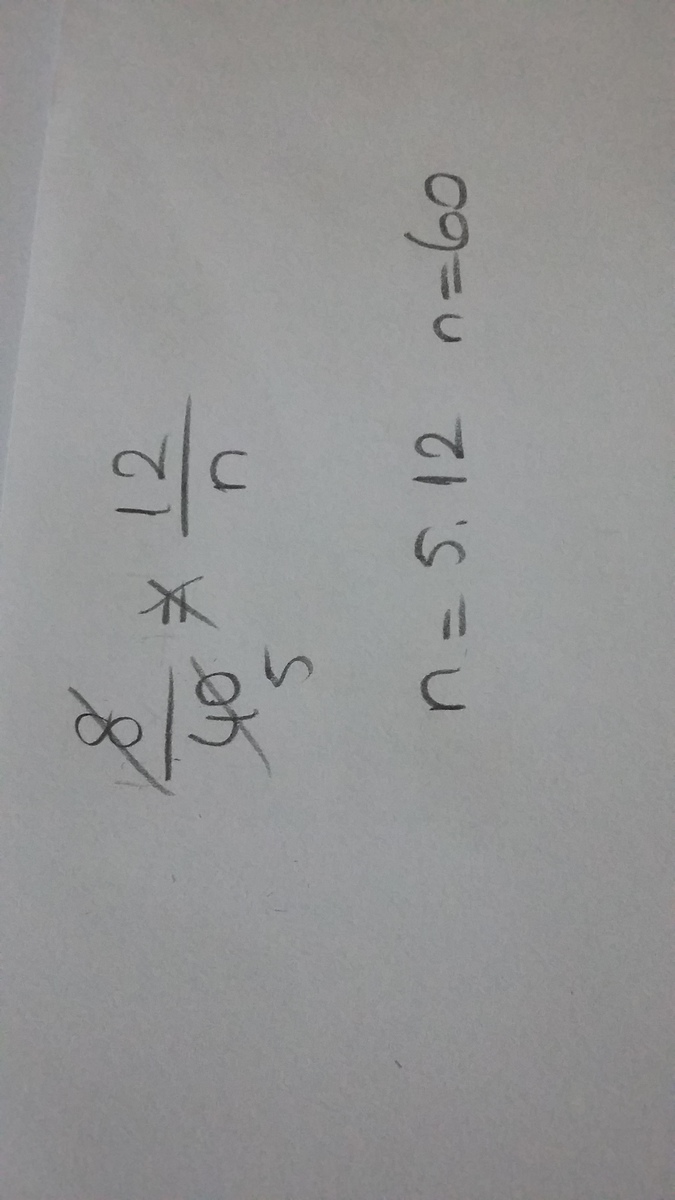 8/40 = 12/n
5
n = 5.12 n=60